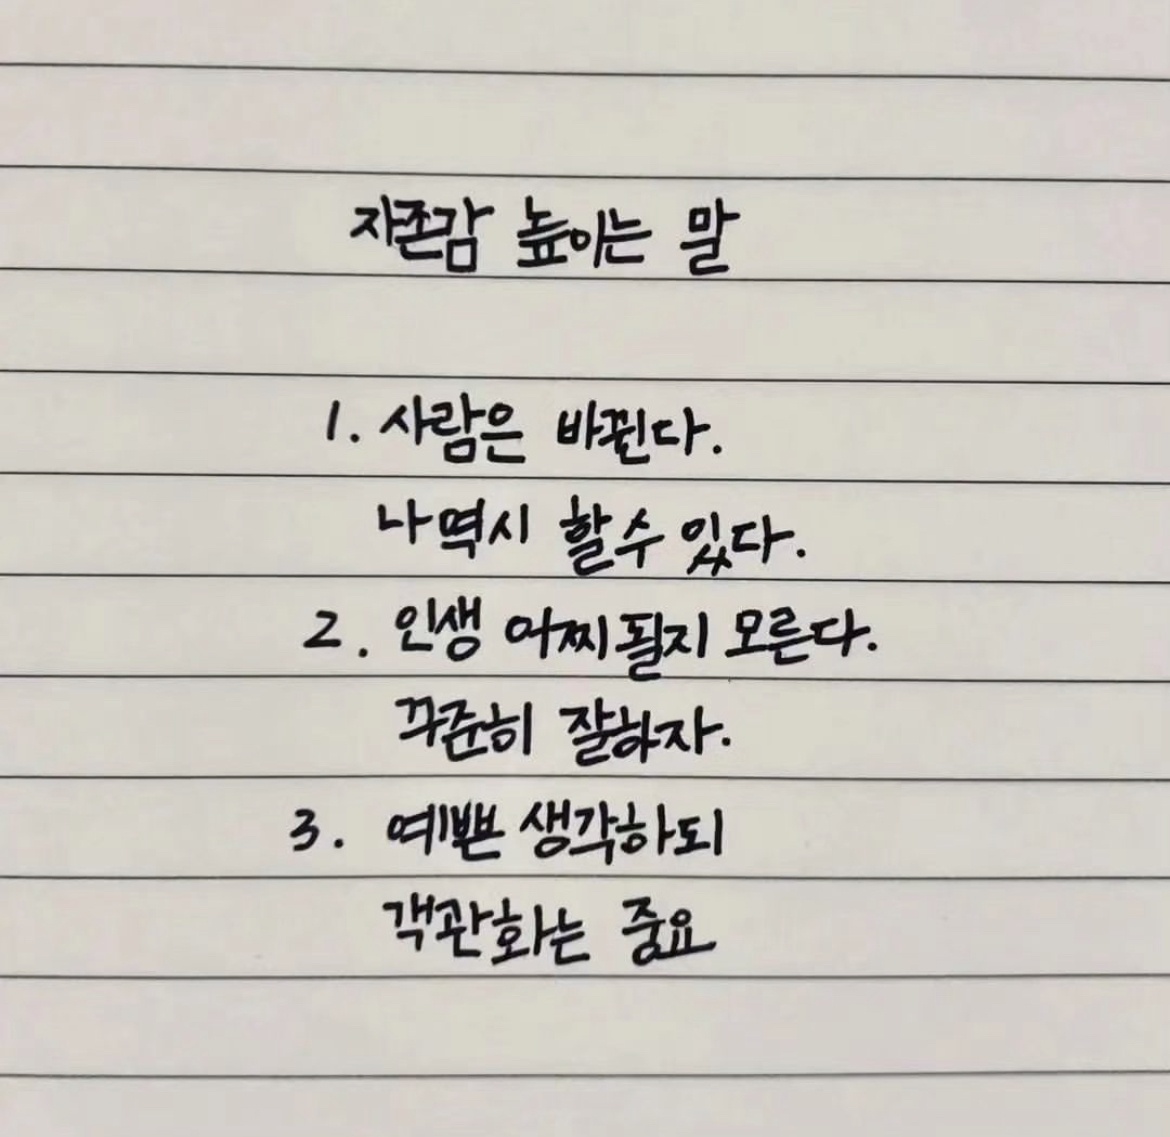 자존감 높이는 말
1. 사람은 바뀐다.
나 역시 할 수 있다.
2. 인생 어찌 될지 모른다.
꾸준히 잘하자.
3. 예쁜 생각하되
객관화는 중요